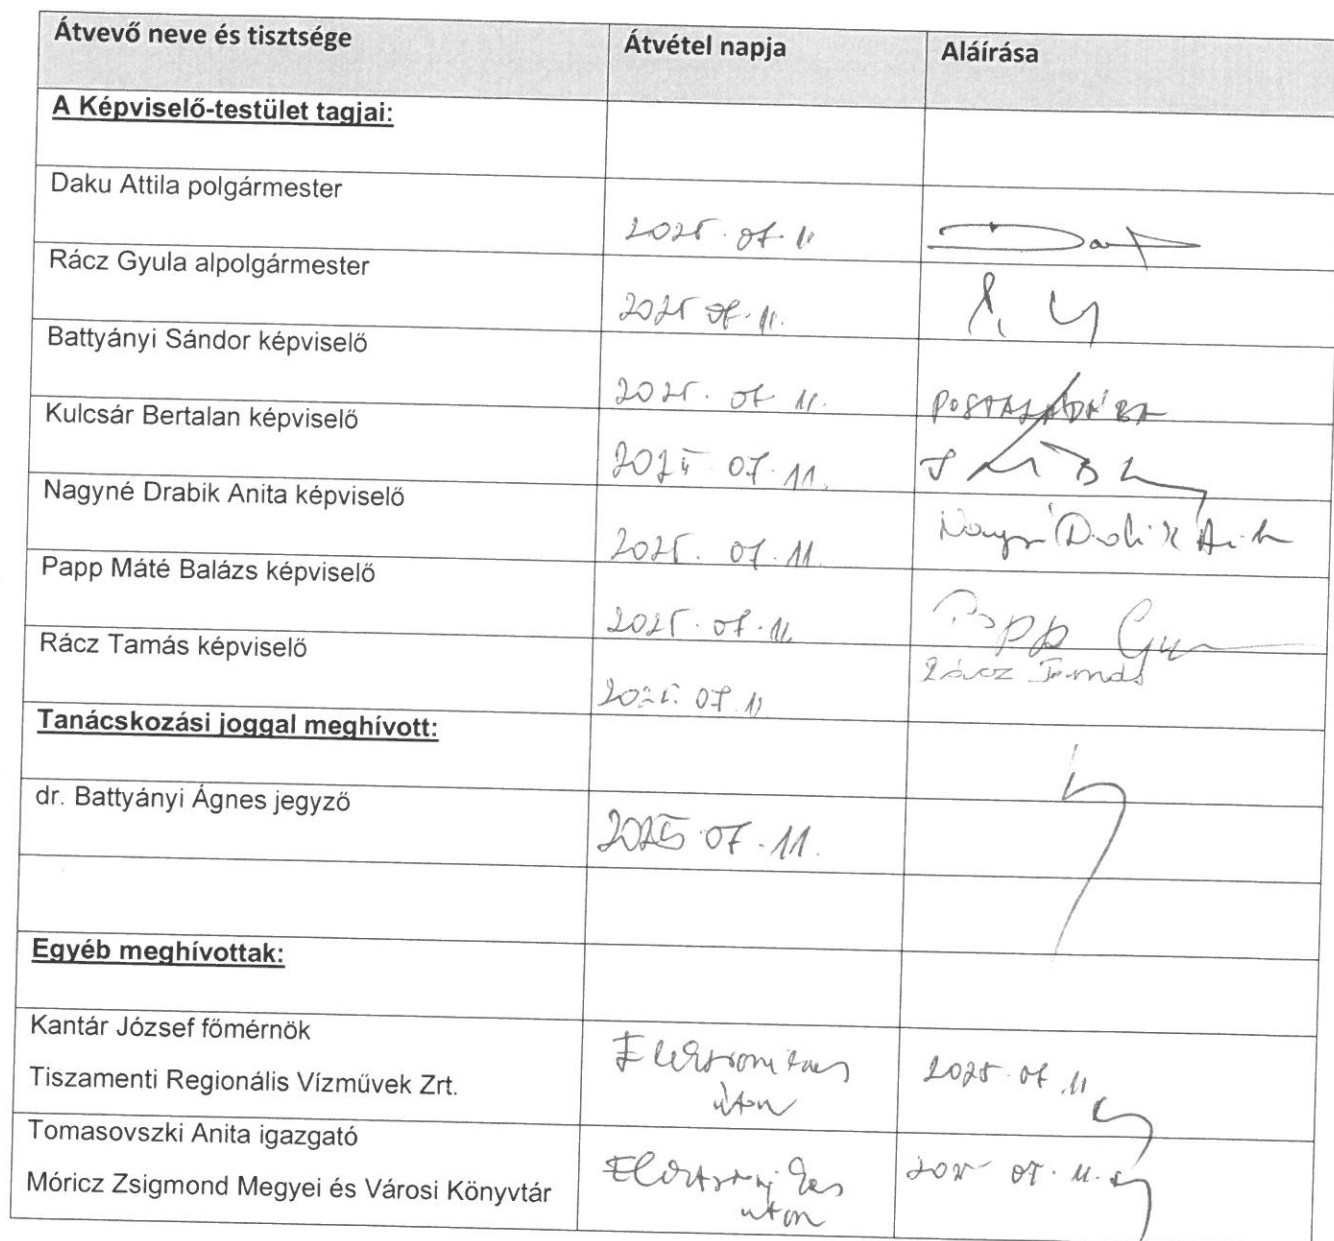 Átvevő neve és tisztsége Átvétel napja Aláírása
A Képviselő-testület tagjai:
Daku Attila polgármester
2025.07.11
Rácz Gyula alpolgármester
2025 07.11.
Battyányi Sándor képviselő
2025. 07 11. POSTALÁDÁBA
Kulcsár Bertalan képviselő
2025 07.11.
Nagyné Drabik Anita képviselő
2025. 07.11. Nagyné Drabik Anita
Papp Máté Balázs képviselő
2025.07.11 Papp
Rácz Tamás képviselő Rácz Tamás
2025.07.11
Tanácskozási joggal meghívott:
dr. Battyányi Ágnes jegyző
2025 07.11.
Egyéb meghívottak:
Kantár József főmérnök Elektronikus 2025.07.11
Tiszamenti Regionális Vízművek Zrt. úton
Tomasovszki Anita igazgató Elektronikus 2025 07.11.
Móricz Zsigmond Megyei és Városi Könyvtár úton